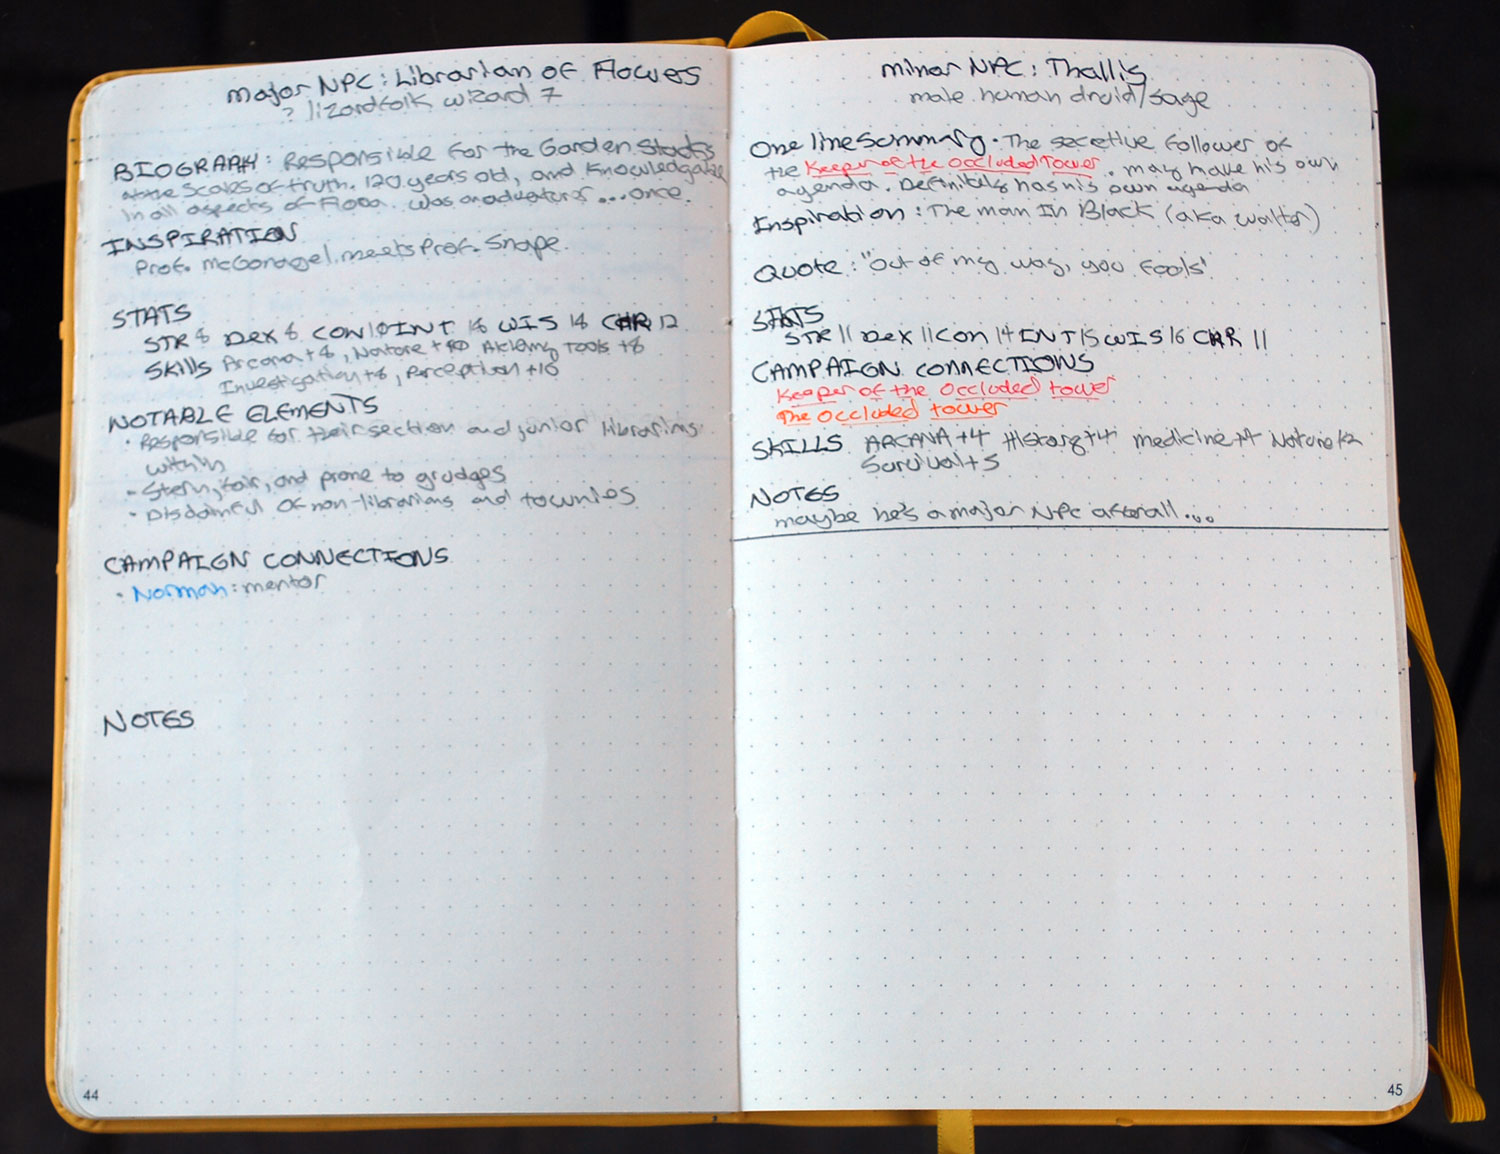 major NPC: Librarian of Flowers
? lizardfolk wizard 7
BIOGRAPHY: Responsible for the Garden Stacks
at the Scales of Truth. 120 years old, and knowledgable
in all aspects of flora. Was an adventurer...once.
INSPIRATION
Prof. McGonagel meets Prof. Snape.
STATS
STR 8 Dex 8 CON 10 INT 18 WIS 18 CHR 12
Skills Arcana +8, Nature +10 Alchemy Tools +8
Investigation +8, Perception +10
NOTABLE ELEMENTS
· Responsible for their section and junior librarians
within
· Stern, fair, and prone to grudges
· Disdainful of non-librarians and townies
CAMPAIGN CONNECTIONS
· Norman: mentor
NOTES
44
minor NPC: Thallis
male human druid/sage
One line Summary. The secretive follower of
the Keeper of the Occluded Tower. may have his own
agenda. Definitely has his own agenda
Inspiration: The man In Black (aka Walter)
Quote: "Out of my way, you fools"
STATS
STR 11 Dex 11 Con 14 INT 15 WIS 16 CHR 11
CAMPAIGN CONNECTIONS
Keeper of the Occluded tower
The Occluded tower
SKILLS ARCANA +4 History +4 medicine +4 Nature +2
Survival +5
NOTES
maybe he's a major NPC afterall...
45